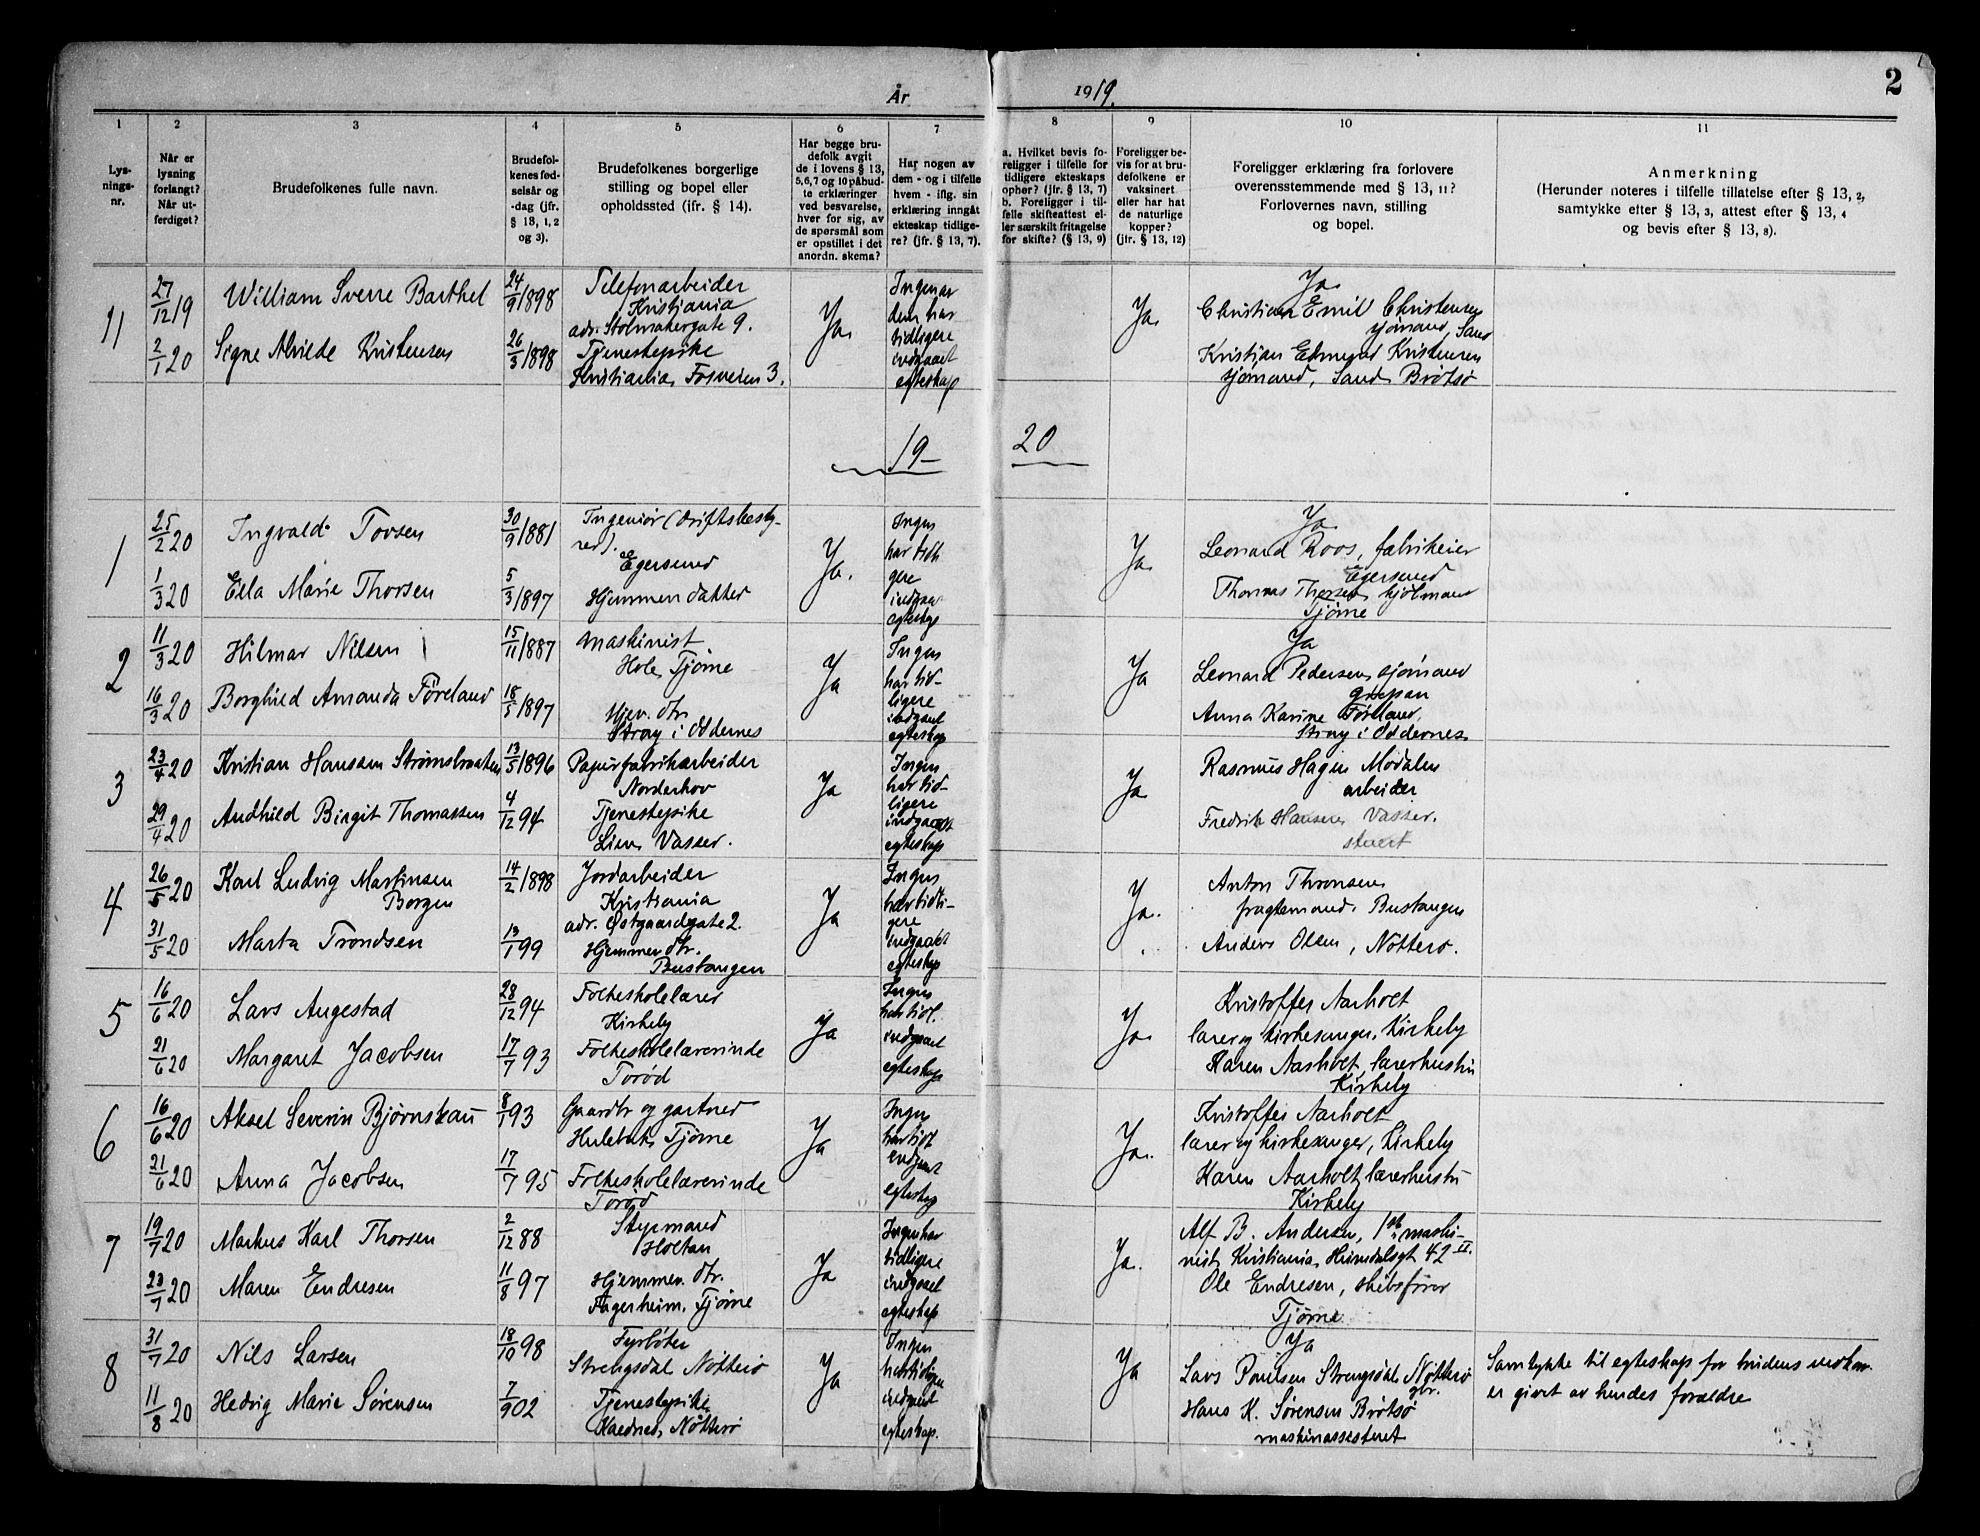 2
År
1919.
1
2
3
4
5
6
7
8
9
10
11
Lys-
nings-
nr.
Når er
lysning
forlangt?
Når ut-
ferdiget?
Brudefolkenes fulle navn.
Brudefol-
kenes fød-
selsår og
-dag (jfr.
§ 13, 1, 2
og 3).
Brudefolkenes borgerlige
stilling og bopel eller
opholdssted (ifr. § 14).
Har begge bru-
defolk avgit
de i lovens § 13,
5,6,7 og 10 påbud-
te erklæringer
ved besvarelse,
hver for sig, av
de spørsmål som
er opstillet i det
anordn. skema?
Har nogen av
dem - og i tilfelle
hvem - iflg. sin
erklæring inngåt
ekteskap tidlige-
re? (jfr. § 13, 7).
a. Hvilket bevis fo-
religger i tilfelle for
tidligere ekteskaps
ophør? (jfr. § 13, 7)
b. Foreligger i til-
felle skifteattest el-
ler særskilt fritagelse
for skifte? (§ 13, 9)
Foreligger be-
vis for at bru-
defolkene er
vaksinert
eller har hat
de naturlige
kopper?
(jfr. § 13, 12)
Foreligger erklæring fra forlovere
overensstemmende med § 13, 11?
Forlovernes navn, stilling
og bopel.
Anmerkning
(Herunder noteres i tilfelle tillatelse efter § 13, 2,
samtykke efter § 13, 3, attest efter § 13, 4
og bevis efter § 13, 8).
11
27/12 19
William Sverre Barthel
24/9 1898
Telefonarbeider
Kristiania
adr. Stolmakergate 9.
2/1 20
Signe Alvilde Kristensen
26/3 1898
Tjenestepike
Kristiania, Fosveien 3.
Ja.
Ingen av
dem har
tidligere
indgaaet
egteskap
Ja.
Ja
Christian Emil Christensen
sjømand, Sand
Kristian Edmund Kristensen
sjømand, Sand Brøtsø
19-20
1
25/2 20
Ingvald Tovsen
30/9 1881
Ingeniør (driftsbesty-
rer).
Egersund
1/3 20
Ella Marie Thorsen
5/3 1897
Hjemmen datter
Ja.
Ingen
har tidli
gere
indgaa
egteskap
Ja.
Ja
Leonard Roos, fabrikeier
Egersund
Thomas Thorsen
Tjøme
2
11/3 20
Hilmar Nilsen
15/11 1887
Maskinist
Hole, Tjøme
16/3 20
Borghild Amanda Føreland
18/5 1897
Hjem. dtr.
Stray i Oddernes
Ja
Ingen
har tid-
ligere
indgaaet
egteskap
Ja
Ja
Leonard Pedersen, sjømand
Anna Karine Føreland,
Stray i Oddernes
3
23/4 20
Kristian Hansen Strømsbraaten
13/5 1896
Papirfabrikarbeider
Norderhov
29/4 20
Audhild Birgit Thomassen
4/12 94
Tjenestepike
Lien, Vasser.
Ja
Ingen
har tid-
ligere
indgaaet
egteskap
Ja
Rasmus Hagen Modalen
arbeider
Fredrik Hansen Vasser.
stuert
4
26/5 20
Karl Ludvig Martinsen
Borgen
14/2 1898
Jordarbeider
Kristiania
adr. Østgaardsgate 2.
31/5 20
Marta Trondsen
13/1 99
Hjemmen. dtr.
Bustangen
Ja
Ingen
har tidli-
gere
indgaaet
egteskap
Ja.
Anton Thronsen
fragtemand. Bustangen
Anders Olsen, Nøtterø.
5
16/6 20
Lars Augestad
28/12 94
Folkeskolelærer
Kirkeby
21/6 20
Margaret Jacobsen
17/7 93
Folkeskolelærerinde
Torød
Ja
Ingen
har tidl.
indgaaet
egteskap
Ja.
Kristoffer Aarholt
lærer og kirkesanger, Kirkeby
Karen Aarholt, lærerhustru
Kirkeby
6
16/6 20
Aksel Severin Bjørnskau
8/1 93
Gaardbr og gartner
Hulebak, Tjøme
21/6 20
Anna Jacobsen
17/7 95
Folkeskolelærerinde
Torød
Ja
Ingen
har tidl
indgaaet
egteskap
Ja.
Kristoffer Aarholt
lærer og kirkesanger, Kirkeby
Karen Aarholt, lærerhustru
Kirkeby
7
19/7 20
Markus Karl Thorsen
2/12 88
Styrmand
Holtan
23/7 20
Maren Endresen
11/8 97
Hjemmen. dtr.
Fagerheim, Tjøme
Ja
Ingen har
tidligere
indgaaet
egteskap
Ja.
Alf B. Andersen, 1ste maski-
nist, Kristiania, Heimdalsgt 42 II.
Ole Endresen, skibsfører
Tjøme
8
31/7 20
Nils Larsen
18/10 98
Fyrbøter
Strengsdal Nøtterø
11/8 20
Hedvig Marie Sørensen
7/9 02
Tjenestepike
Kaldnes, Nøtterø
Ja
Ingen
har tidligere
indgaaet
egteskap.
Ja
Ja
Lars Poulsen Strengsdal, Nøtterø
gbr.
Hans K. Sørensen Brøtsø
maskinassistent
Samtykke til egteskap for brudens vedkom.
er givet av hendes forældre